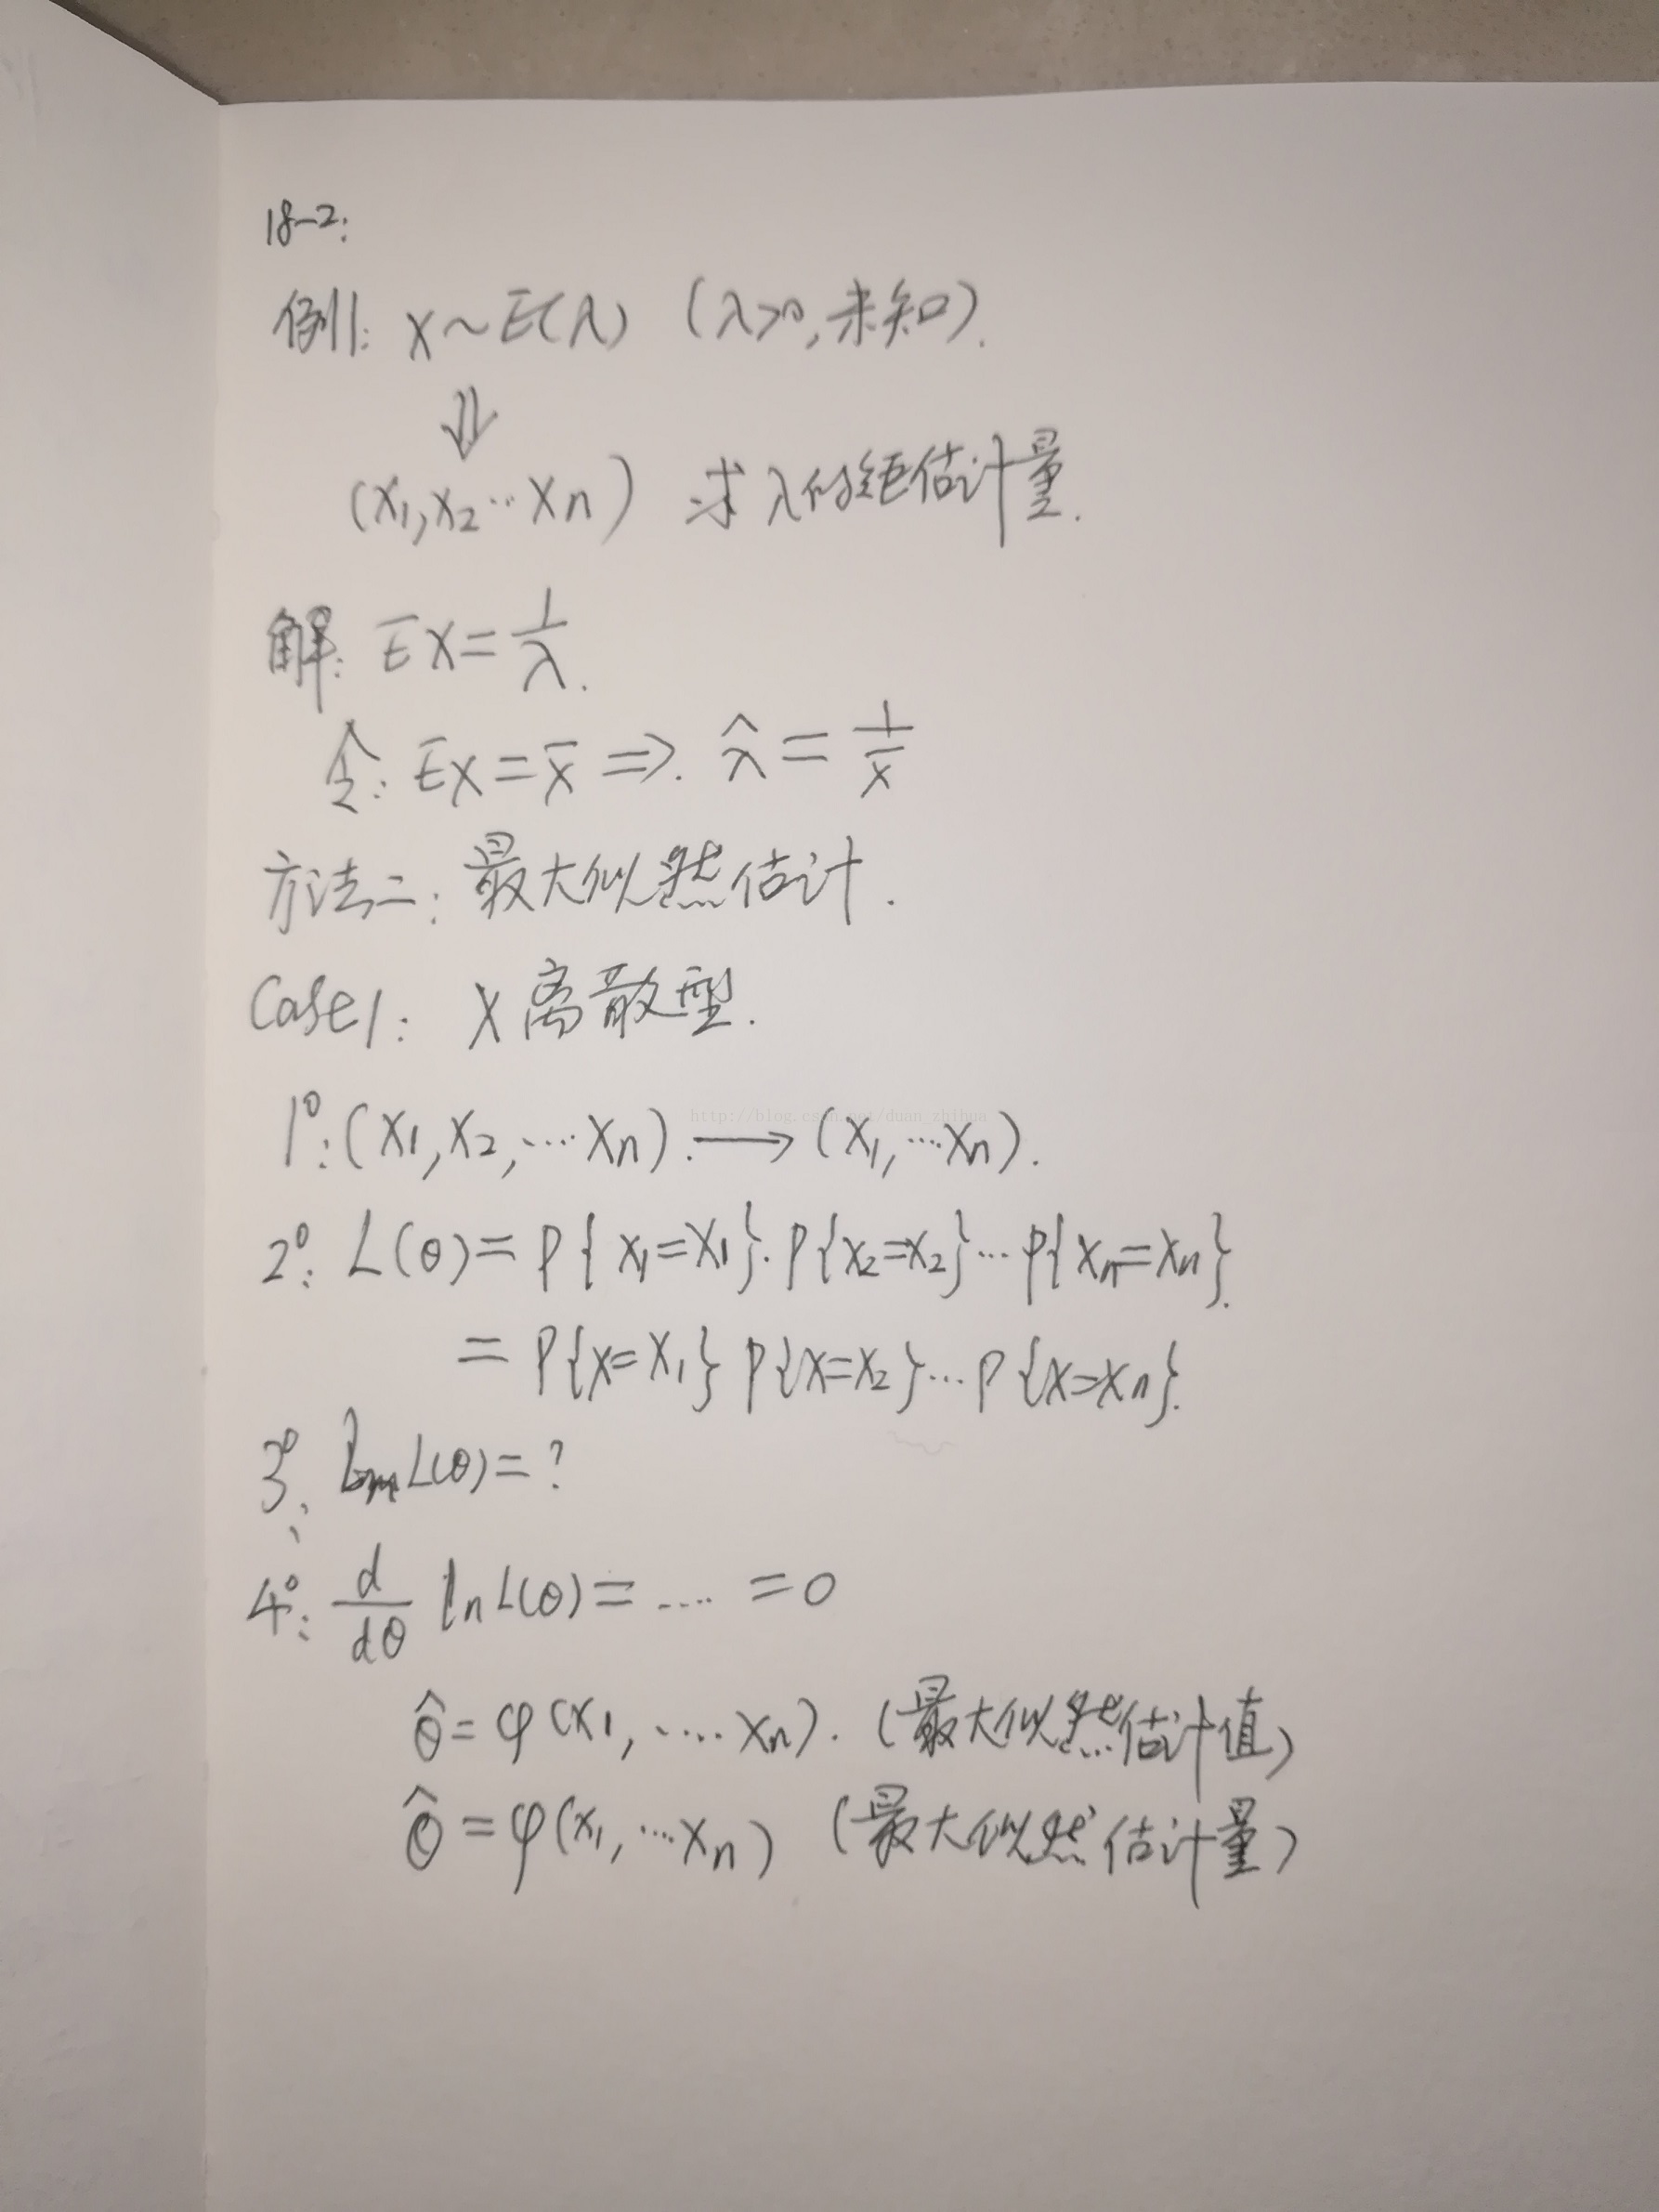 18-2:
例1: X~E(λ) (λ>0,未知).
⇓
(X1,X2…Xn) 求λ的矩估计量.
解: EX=1/λ.
令: EX=X̄ ⇒. λ̂=1/X̄
方法二: 最大似然估计.
Case1: X离散型.
http://blog.csdn.net/duan_zhihua
1°: (X1,X2,…Xn). → (x1,…xn).
2°: L(θ)=P{X1=x1}.P{X2=x2}…P{Xn=xn}.
=P{X=x1}P{X=x2}…P{X=xn}.
3°: ln L(θ)=?
4°: d/dθ ln L(θ)=….=0
θ̂=φ(x1,….xn). (最大似然估计值)
θ̂=φ(X1,…Xn) (最大似然估计量)